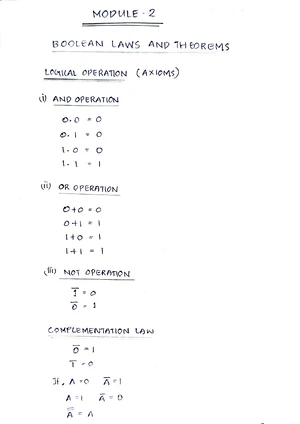 MODULE - 2
BOOLEAN LAWS AND THEOREMS
LOGICAL OPERATION (AXIOMS)
(i) AND OPERATION
0.0 = 0
0.1 = 0
1.0 = 0
1.1 = 1
(ii) OR OPERATION
0+0 = 0
0+1 = 1
1+0 = 1
1+1 = 1
(iii) NOT OPERATION
1̅ = 0
0̅ = 1
COMPLEMENTATION LAW
0̅ = 1
1̅ = 0
If, A=0 A̅=1
A=1 A̅=0
A̿ = A